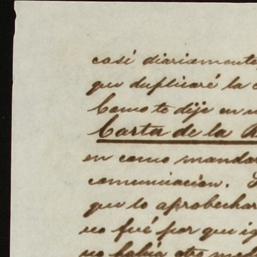 casi diariamente
que duplicaré la
Como te dije en
Carta de la
en como mandar
comunicacion.
que lo aprobechar
no fué por que
no habia otro